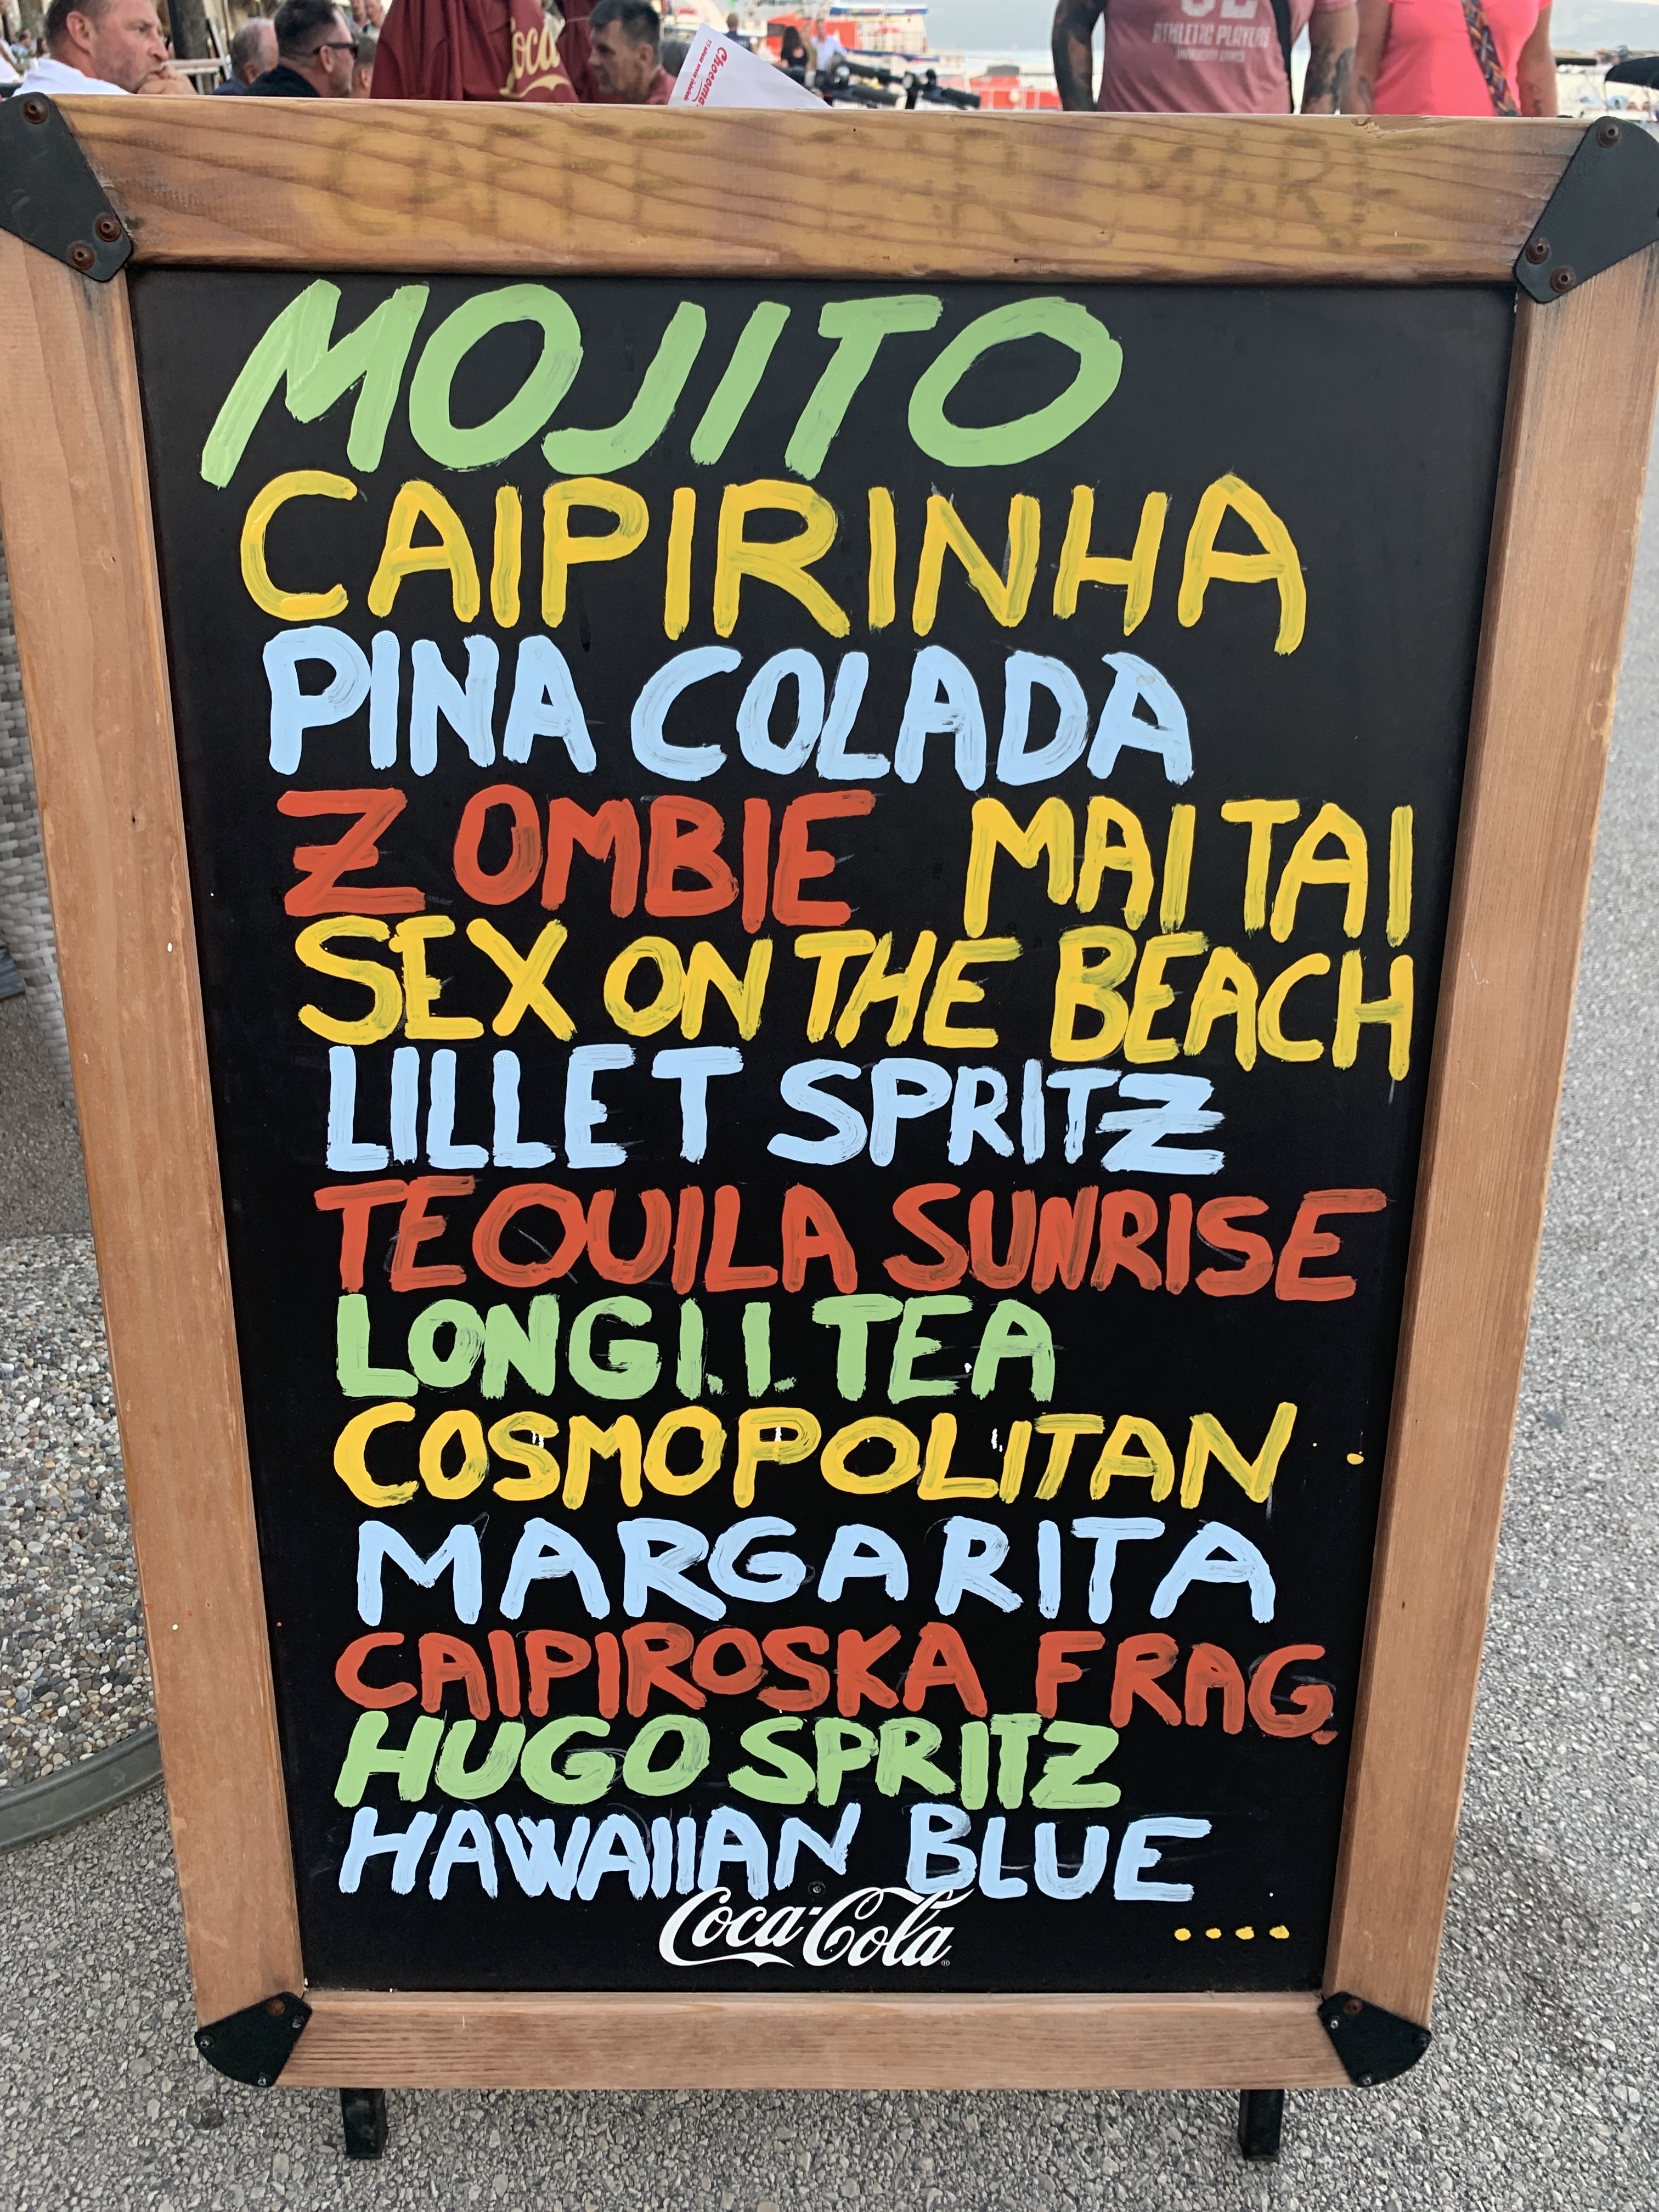 Coca
Chocomax
ATHLETIC PLAYERS
CAFFE BAR MARE
MOJITO
CAIPIRINHA
PINA COLADA
ZOMBIE MAI TAI
SEX ON THE BEACH
LILLET SPRITZ
TEQUILA SUNRISE
LONG I.I. TEA
COSMOPOLITAN
MARGARITA
CAIPIROSKA FRAG.
HUGO SPRITZ
HAWAIIAN BLUE
Coca-Cola
....